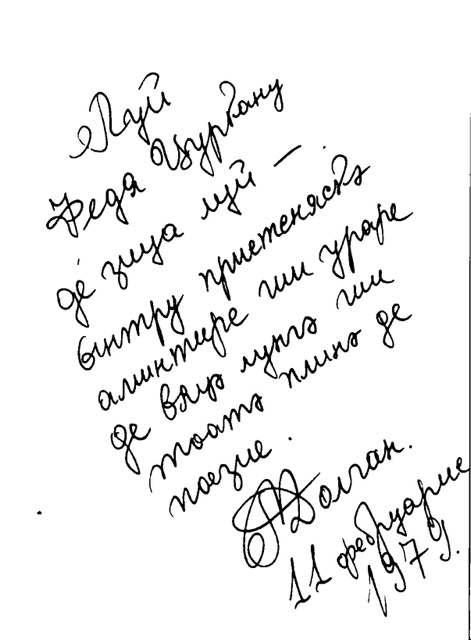 Луй
Федя Цуркану
де зиуа луй —
ынтру приетеняскэ
аминтире ши ураре
де вяцэ лунгэ ши
тоатэ плинэ де
поезие.
Долган.
11 фебруарие
1979.